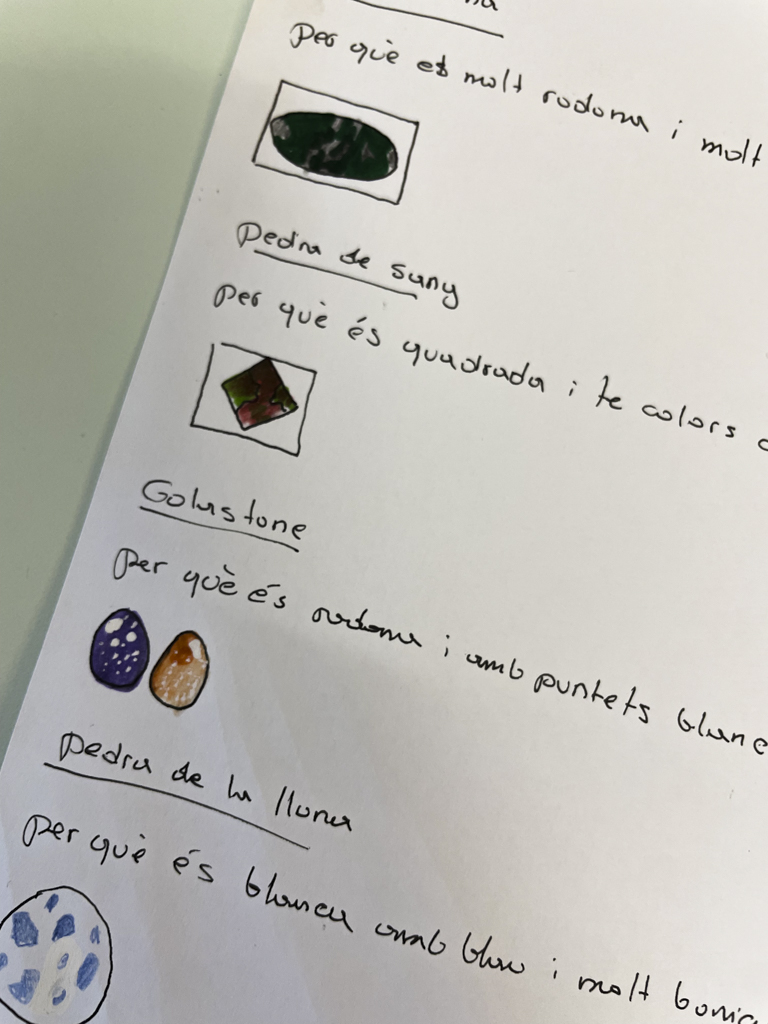 Per què es molt rodona i molt
Pedra de sang
Per què és quadrada i te colors
Golastone
Per què és rodona i amb puntets blanc
Pedra de la lluna
Per què és blanca amb blau i molt bonic